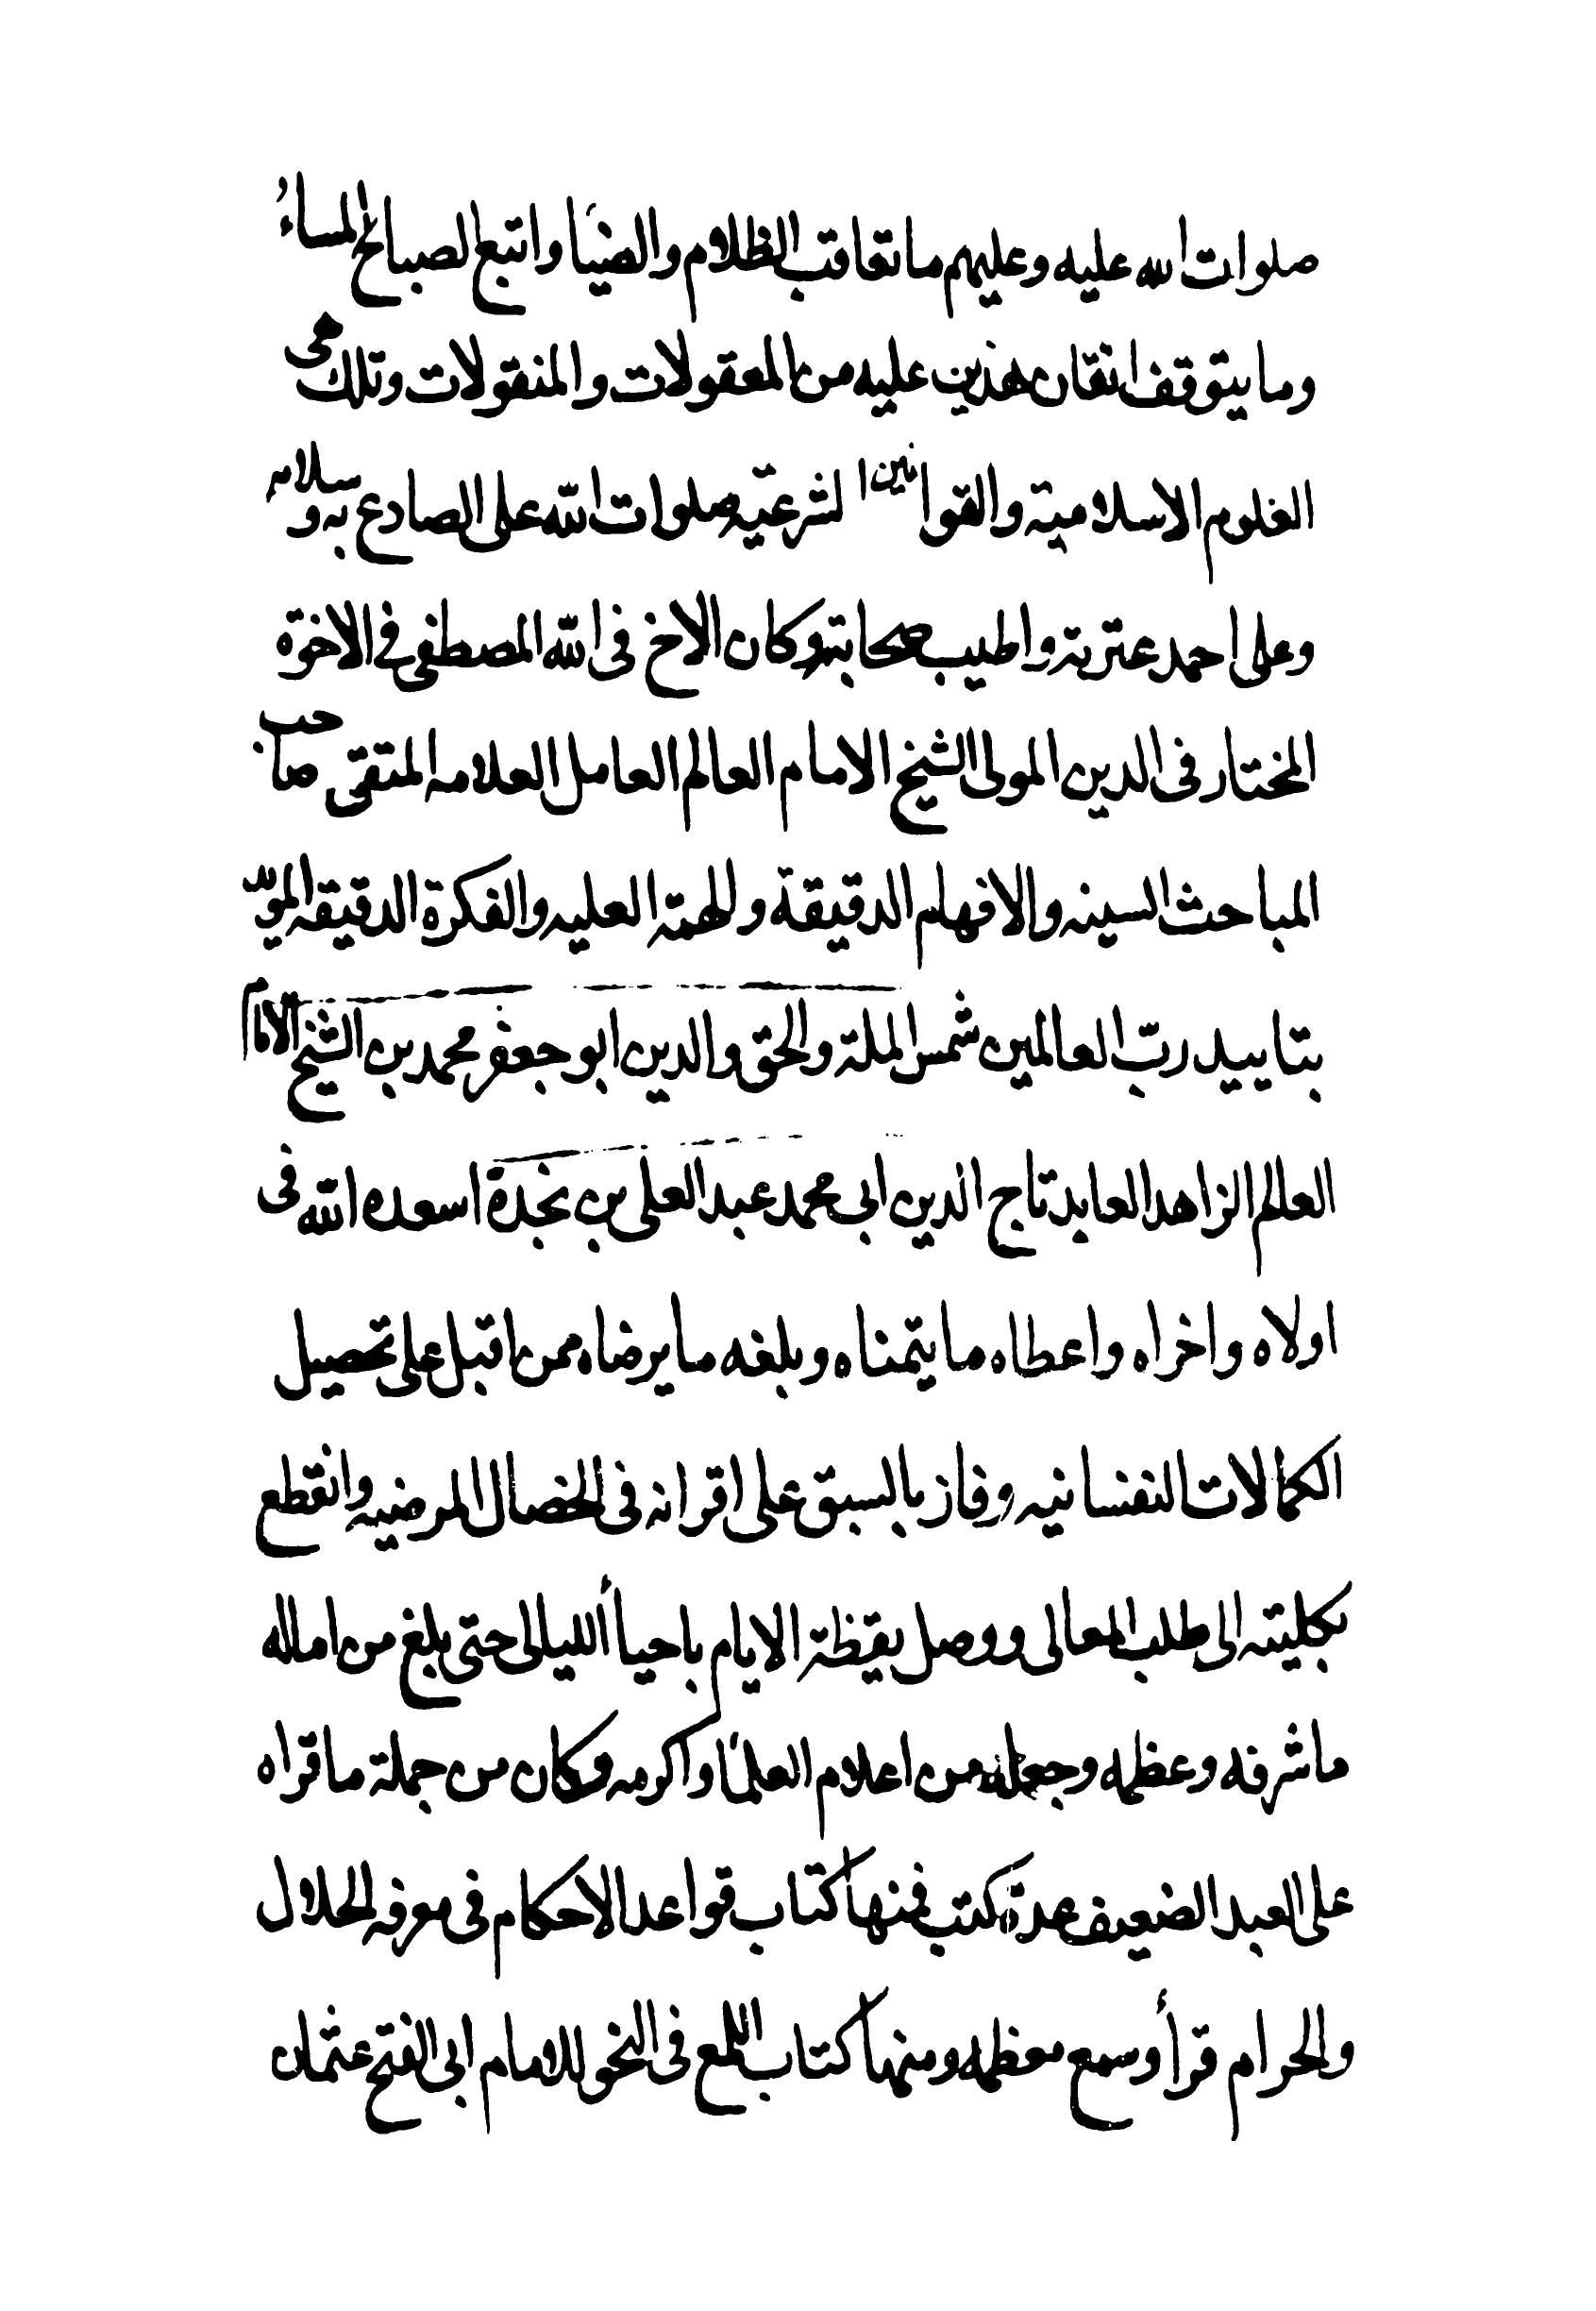 صلوات الله عليه وعليهم ما تعاقب الظلام والضيآ واتبع الصباح المساء
وما يتوقف اتقان هذين عليه من المعقولات والمنقولات وتلك هى
العلوم الاسلامية والقوانين الشرعيّه صلوات الله على الصادع به وسلامه
وعلى احمد عترته واطيب صحابته وكان الاخ فى الله المصطفى فى الاخوة
المختار فى الدين المولى الشيخ الامام العالم العامل العلامه المتقى صاحب
المباحث السينه والافهام الدقيقة والهمة العليه والفكرة الدقيقه المويّد
بتاييد ربّ العالمين شمس الملة والحق والدين ابو جعفر محمد بن الشيخ الامام
العالم الزاهد العابد تاج الدين ابى محمد عبد العلى بن نجدة اسعده الله فى
اولاه واخراه واعطاه ما يتمناه وبلغه ما يرضاه ممن اقبل على تحصيل
الكمالات النفسانيه وفاز بالسبق على اقرانه فى الخصال المرضيه وانقطع
بكليته الى طلب المعالى ووصل يقظة الايام باحيا الليالى حتى بلغ من اماله
ما شرفه وعظمه وجعله من اعلام العلمآ واكرمه وكان من جملة ما قراه
على العبد الضعيف عدة كتب فمنها كتاب قواعد الاحكام فى معرفه الحلال
والحرام قرأ وسمع معظمه ومنها كتاب اللمع فى النحو للامام ابى الفتح عثمان